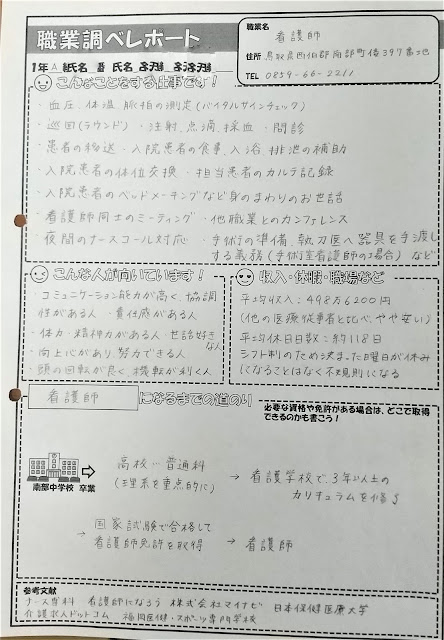 職業調べレポート
職業名
看護師
住所 鳥取県西伯郡南部町倭397番地
TEL 0859-66-2211
1年A組 番 氏名
こんなことをする仕事です！
・血圧、体温、脈拍の測定(バイタルサインチェック)
・巡回(ラウンド) ・注射、点滴、採血 ・問診
・患者の移送 ・入院患者の食事、入浴、排泄の補助
・入院患者の体位交換 ・担当患者のカルテ記録
・入院患者のベッドメーキングなど身のまわりのお世話
・看護師同士のミーティング ・他職業とのカンファレンス
・夜間のナースコール対応 ・手術の準備、執刀医へ器具を手渡し
する業務(手術室看護師の場合) など
こんな人が向いています！
・コミュニケーション能力が高く、協調
性がある人 ・責任感がある人
・体力・精神力がある人・世話好き
な人
・向上心があり、努力できる人
・頭の回転が良く、機転が利く人
収入・休暇・職場など
平均収入：498万6200円
(他の医療従事者と比べ、やや安い)
平均休日日数：約118日
シフト制のため決まった曜日が休み
になることはなく不規則になる
看護師 になるまでの道のり
必要な資格や免許がある場合は、どこで取得
できるのかも書こう！
南部中学校 卒業
高校…普通科
(理系を重点的に)
→ 看護学校で、3年以上の
カリキュラムを修了
→ 国家試験で合格して
看護師免許を取得
→ 看護師
参考文献
ナース専科 看護師になろう 株式会社マイナビ 日本保健医療大学
介護求人ドットコム 福岡医健・スポーツ専門学校